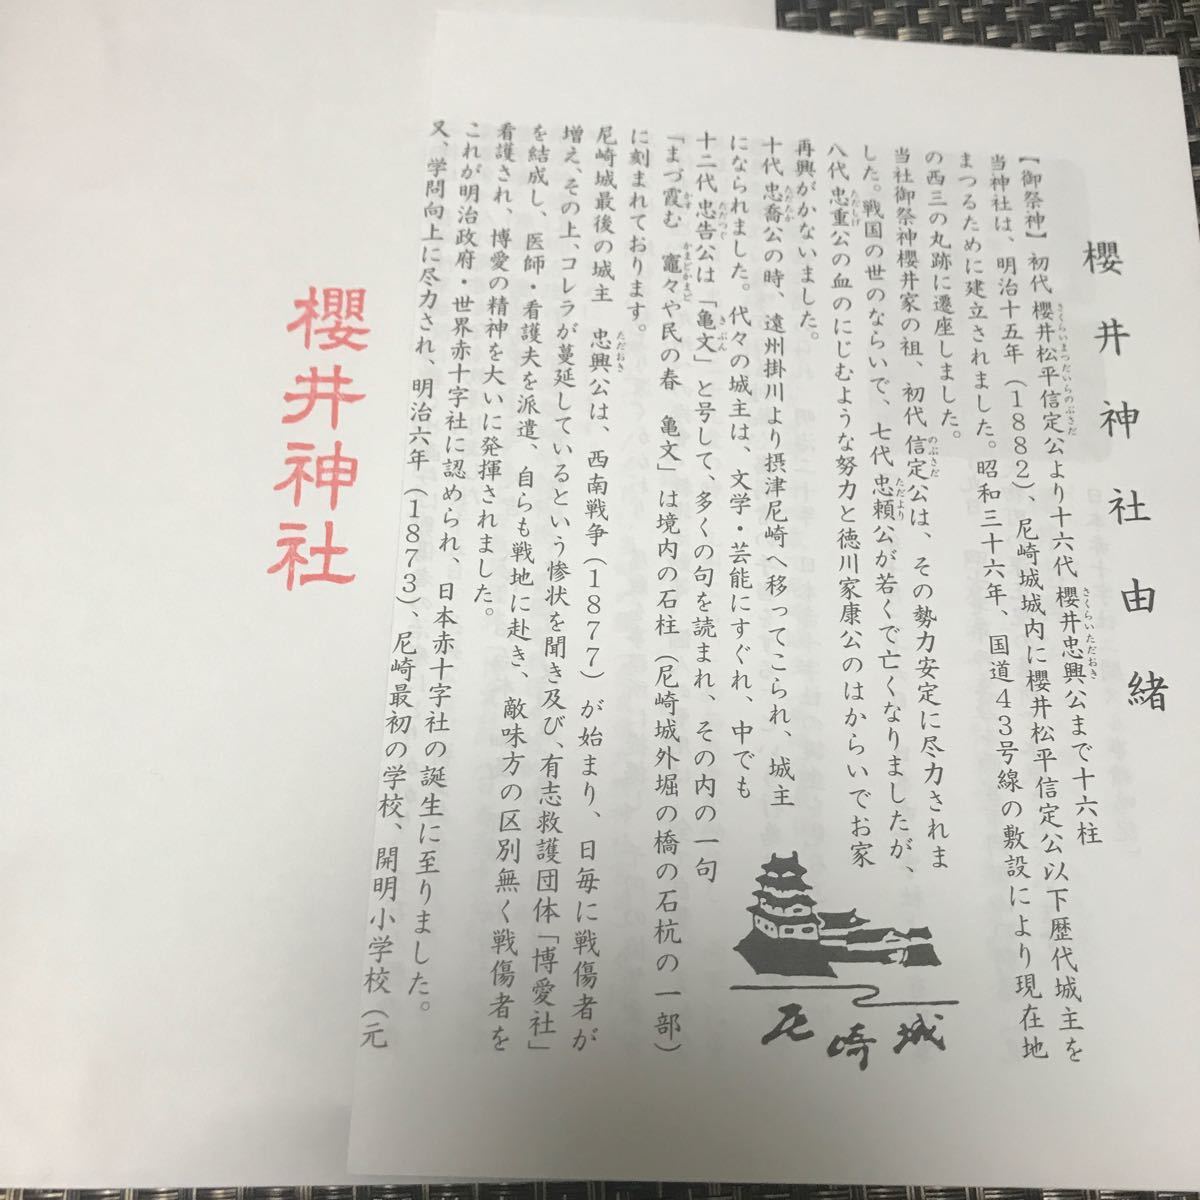 櫻井神社由緒
【御祭神】初代 櫻井松平信定公より十六代 櫻井忠興公まで十六柱
さくらいまつだいらのぶさだ
さくらいただおき
当神社は、明治十五年（1882）、尼崎城城内に櫻井松平信定公以下歴代城主を
まつるために建立されました。昭和三十六年、国道43号線の敷設により現在地
の西三の丸跡に遷座しました。
当社御祭神櫻井家の祖、初代 信定公は、その勢力安定に尽力されま
のぶさだ
した。戦国の世のならいで、七代 忠頼公が若くで亡くなりましたが、
ただより
八代 忠重公の血のにじむような努力と徳川家康公のはからいでお家
ただしげ
再興がかないました。
十代 忠喬公の時、遠州掛川より摂津尼崎へ移ってこられ、城主
ただたか
になられました。代々の城主は、文学・芸能にすぐれ、中でも
十二代 忠告公は「亀文」と号して、多くの句を読まれ、その内の一句
ただつぐ
きぶん
「まづ霞む 竈々や民の春 亀文」は境内の石柱（尼崎城外堀の橋の石杭の一部）
かす
かまどかまど
に刻まれております。
尼崎城最後の城主 忠興公は、西南戦争（1877）が始まり、日毎に戦傷者が
ただおき
増え、その上、コレラが蔓延しているという惨状を聞き及び、有志救護団体「博愛社」
を結成し、医師・看護夫を派遣、自らも戦地に赴き、敵味方の区別無く戦傷者を
看護され、博愛の精神を大いに発揮されました。
これが明治政府・世界赤十字社に認められ、日本赤十字社の誕生に至りました。
又、学問向上に尽力され、明治六年（1873）、尼崎最初の学校、開明小学校（元
尼崎城
櫻井神社